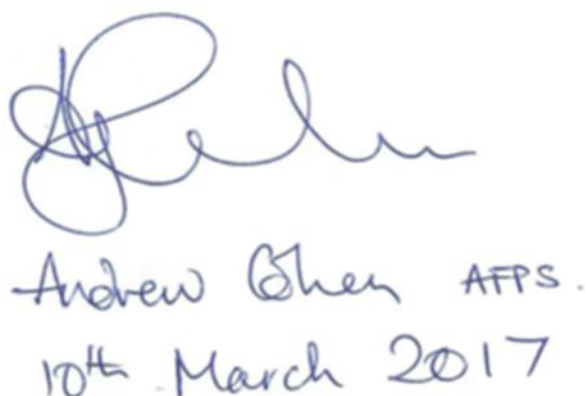 Andrew Cohen AFPS.
10th March 2017